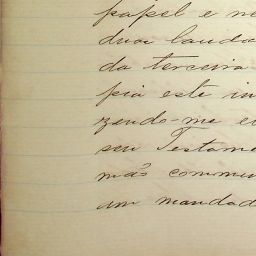 papel e ne
duas lauda
da terceira
pia este in
zendo-me e
seu Testame
mão commu
um mandad